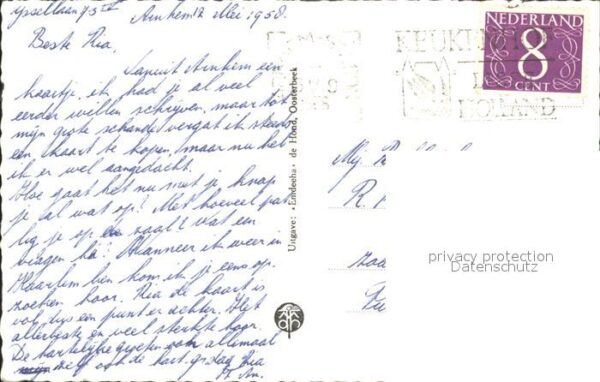 Arnhem 12 Mei 1958.
Beste Ria,
Vanuit Arnhem een
kaartje, ik had je al veel
eerder willen schrijven, maar tot
mijn grote schande vergat ik steeds
een kaart te kopen, maar nu heb
ik er wel aangedacht.
Hoe gaat het nu met je, knap
je al wat op? Met hoeveel pat
lig je op zaal? wat een
vragen hè? Wanneer ik weer in
Haarlem ben kom ik je eens op
zoeken hoor. Ria de kaart is
vol, dus een punt er achter. Het
allerbeste en veel sterkte hoor.
De hartelijke groeten van allemaal
ook de hart. Ria
Uitgave: de Hond, Oosterbeek
NEDERLAND
8
CENT
KEUK
HOLLAND
Mej
R
zaa
privacy protection
Datenschutz